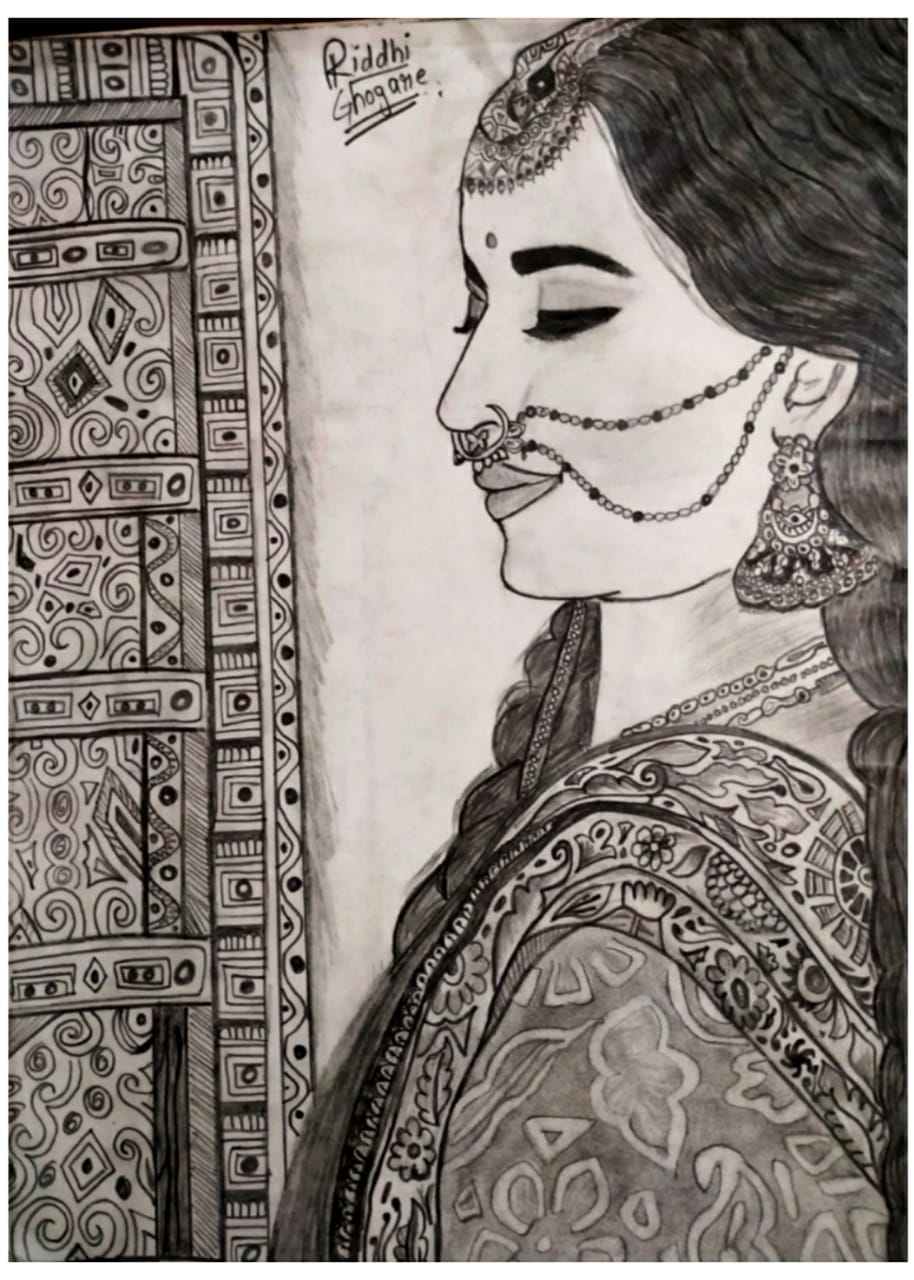 Riddhi
Ghogare.